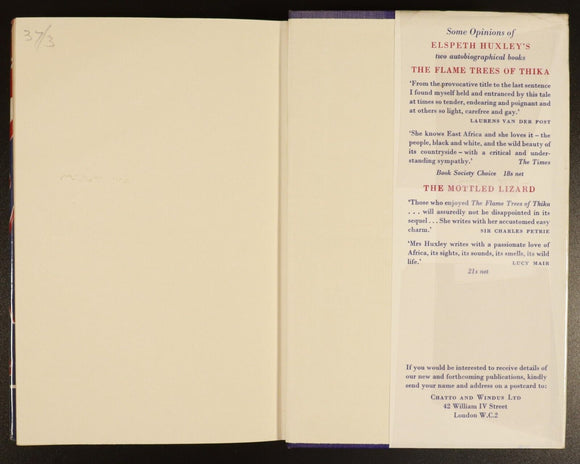 37/3
Some Opinions of
ELSPETH HUXLEY'S
two autobiographical books
THE FLAME TREES OF THIKA
'From the provocative title to the last sentence
I found myself held and entranced by this tale
at times so tender, endearing and poignant and
at others so light, carefree and gay.'
LAURENS VAN DER POST
'She knows East Africa and she loves it – the
people, black and white, and the wild beauty of
its countryside – with a critical and under-
standing sympathy.' The Times
Book Society Choice 18s net
THE MOTTLED LIZARD
'Those who enjoyed The Flame Trees of Thika
. . . will assuredly not be disappointed in its
sequel . . . She writes with her accustomed easy
charm.' SIR CHARLES PETRIE
'Mrs Huxley writes with a passionate love of
Africa, its sights, its sounds, its smells, its wild
life.' LUCY MAIR
21s net
If you would be interested to receive details of
our new and forthcoming publications, kindly
send your name and address on a postcard to:
CHATTO AND WINDUS LTD
42 William IV Street
London W.C.2